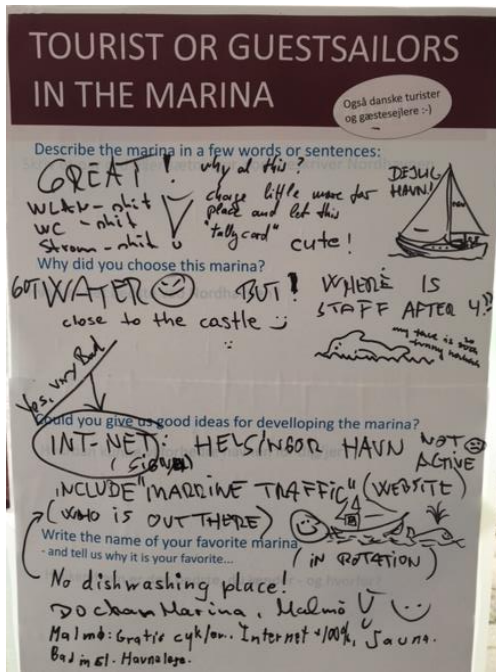 TOURIST OR GUESTSAILORS
IN THE MARINA
Også danske turister
og gæstesejlere :-)
Describe the marina in a few words or sentences:
GREAT!
WLAN-shit
WC - shit
Strom-shit
why al this?
charge little more for
place and let this
"tallycard"
cute!
DEJLIG
HAVN!
Why did you choose this marina?
GOT WATER BUT!
close to the castle
WHERE IS
STAFF AFTER 4?
Yes, very Bad
Could you give us good ideas for develloping the marina?
INT-NET: HELSINGOR HAVN NOT
ACTIVE
INCLUDE "MARRINE TRAFFIC" (WEBSITE)
(WHO IS OUT THERE)
(IN ROTATION)
Write the name of your favorite marina
- and tell us why it is your favorite...
No dishwashing place!
Dockan Marina, Malmö
Malmö: Gratis cykler. Internet +100%, Sauna.